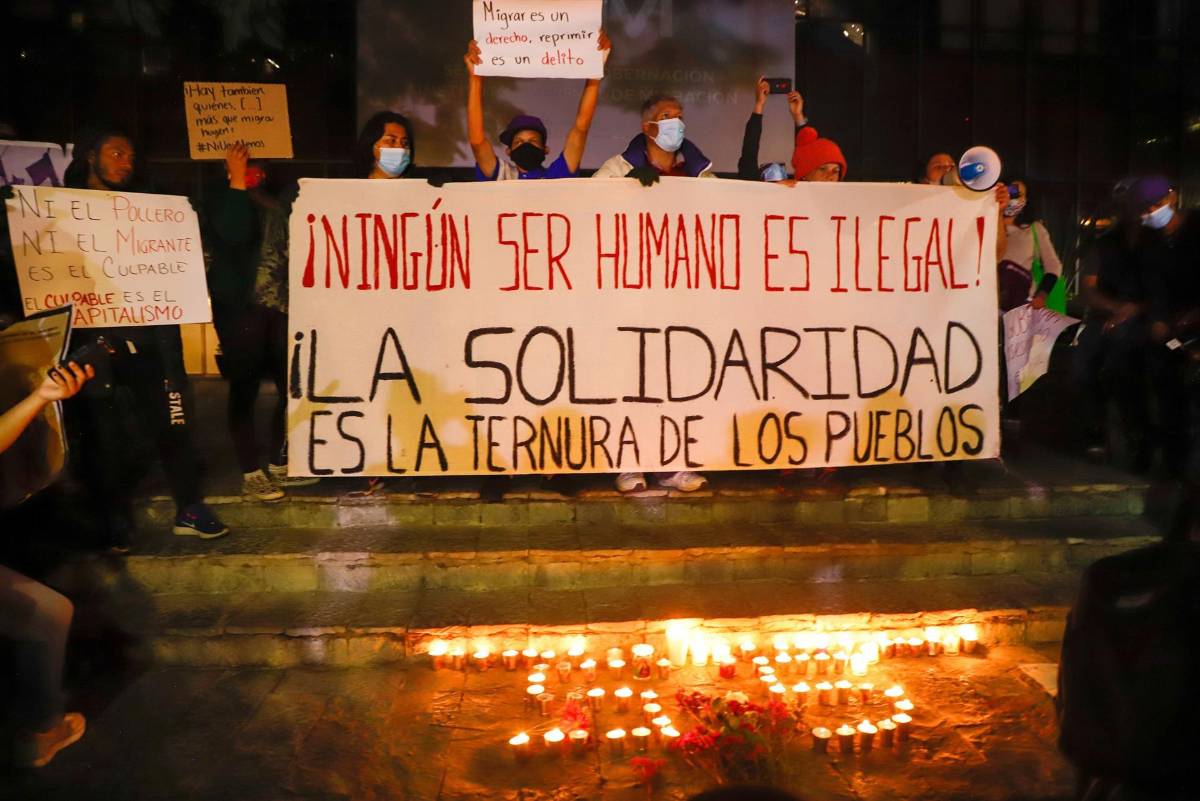 Migrar es un
derecho, reprimir
es un delito
¡Hay tambien
quiénes, [...]
más que migra
hugen!
NI EL POLLERO
NI EL MIGRANTE
ES EL CULPABLE
EL CULPABLE ES EL
CAPITALISMO
¡NINGÚN SER HUMANO ES ILEGAL!
¡LA SOLIDARIDAD
ES LA TERNURA DE LOS PUEBLOS
GOBERNACIÓN
DE MIGRACIÓN
STALE